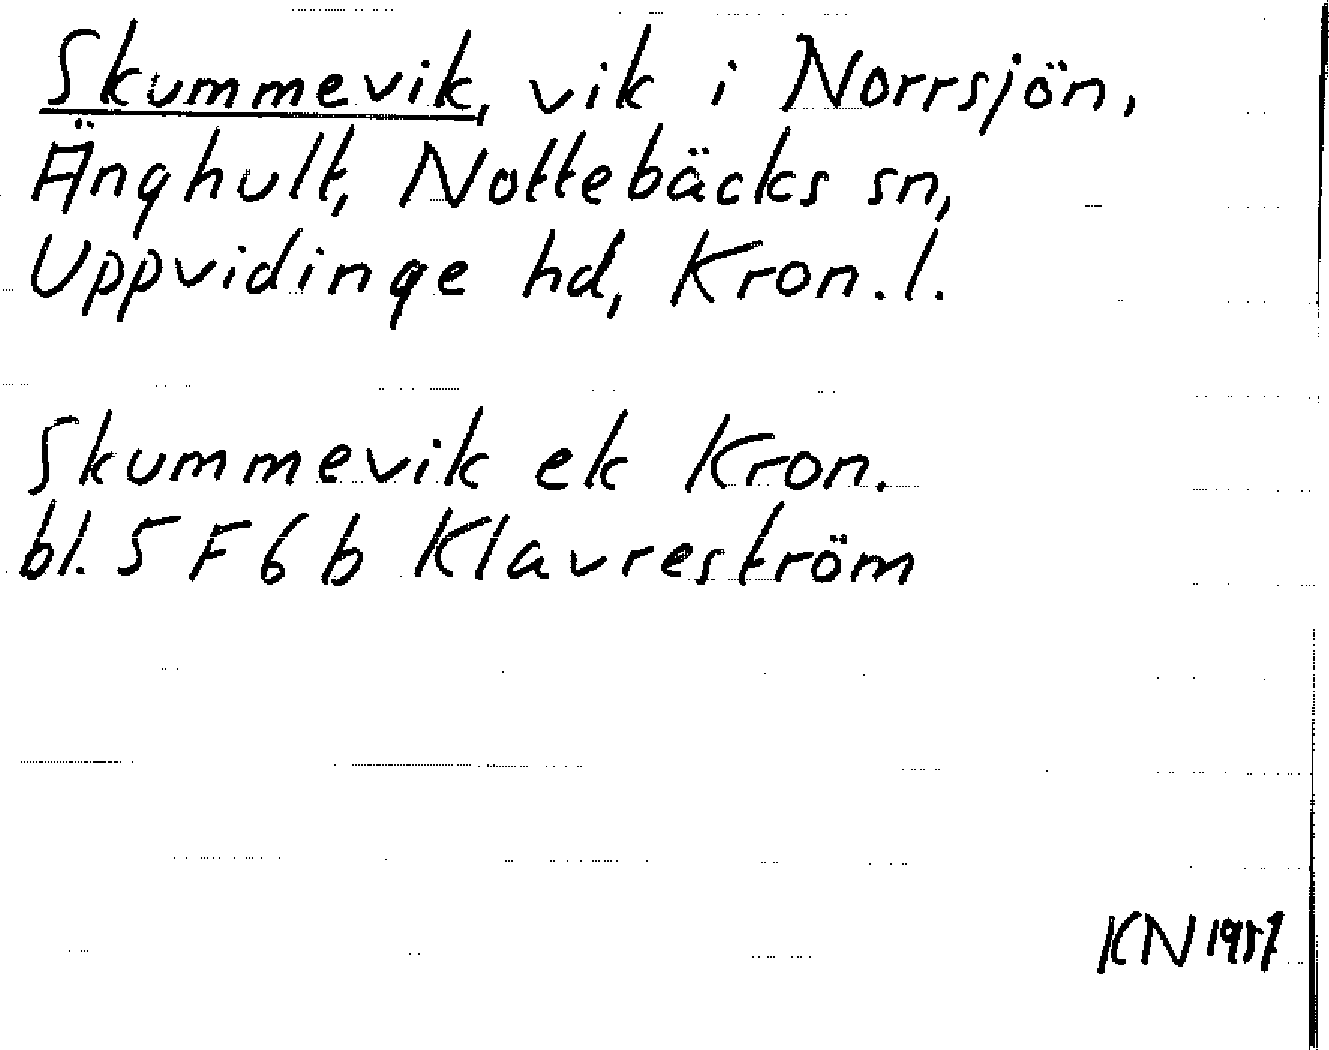 Skummevik, vik i Norrsjön,
Änghult, Nottebäcks sn,
Uppvidinge hd, Kron. l.
Skummevik ek Kron.
bl. 5 F 6 b Klavreström
KN